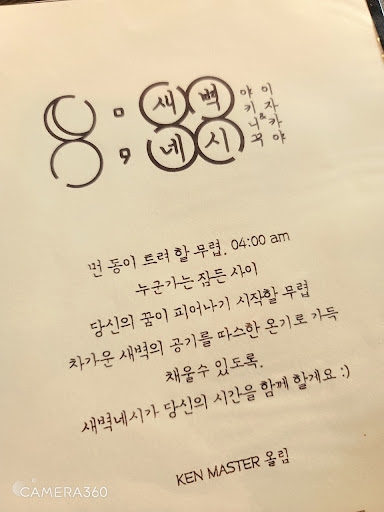 새벽
네시
야 이
키 자
니&카
꾸 야
먼 동이 트려 할 무렵. 04:00 am
누군가는 잠든 사이
당신의 꿈이 피어나기 시작할 무렵
차가운 새벽의 공기를 따스한 온기로 가득
채울수 있도록.
새벽네시가 당신의 시간을 함께 할게요 :)
KEN MASTER 올림
CAMERA360